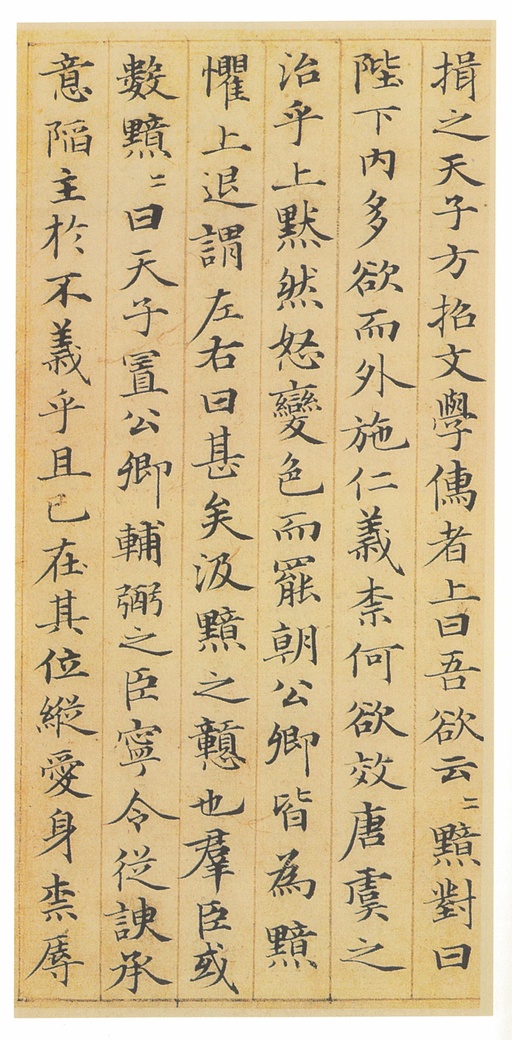 揖之天子方招文學儁者上曰吾欲云〻黯對曰
陛下内多欲而外施仁義柰何欲效唐虞之
治乎上黙然怒變色而罷朝公卿皆為黯
懼上退謂左右曰甚矣汲黯之戇也羣臣或
數黯〻曰天子置公卿輔弼之臣寧令從諛承
意陷主於不義乎且已在其位縱愛身柰辱